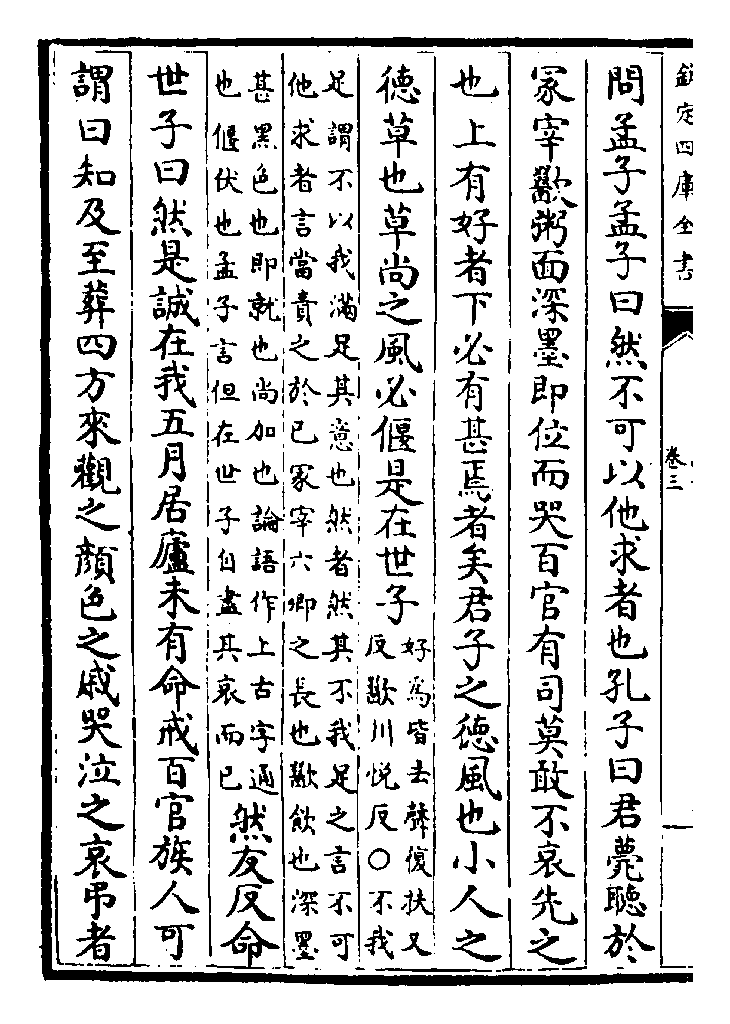 欽定四庫全書
卷三
問孟子孟子曰然不可以他求者也孔子曰君薨聽於
冡宰歠粥面深墨即位而哭百官有司莫敢不哀先之
也上有好者下必有甚焉者矣君子之德風也小人之
德草也草尚之風必偃是在世子
好為皆去聲復扶又
反歠川悅反○不我
足謂不以我滿足其意也然者然其不我足之言不可
他求者言當責之於已冡宰六卿之長也歠飲也深墨
甚黑色也即就也尚加也論語作上古字通
也偃伏也孟子言但在世子自盡其哀而已
然友反命
世子曰然是誠在我五月居廬未有命戒百官族人可
謂曰知及至葬四方來觀之顏色之戚哭泣之哀弔者